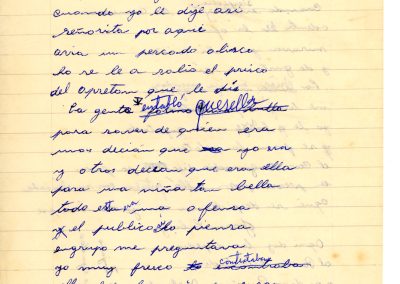 cuando yo le dije asi
señorita por aqui
avia un percado olisco
ho se le a salio el prisco
del apreton que le dio
La gente entabló quesella
para saver de quien era
unos decian que yo era
y otros decian que era ella
para una niña tan bella
todo era una ofensa
y el publico lo piensa
engrupo me preguntava
yo muy fresco contestaba